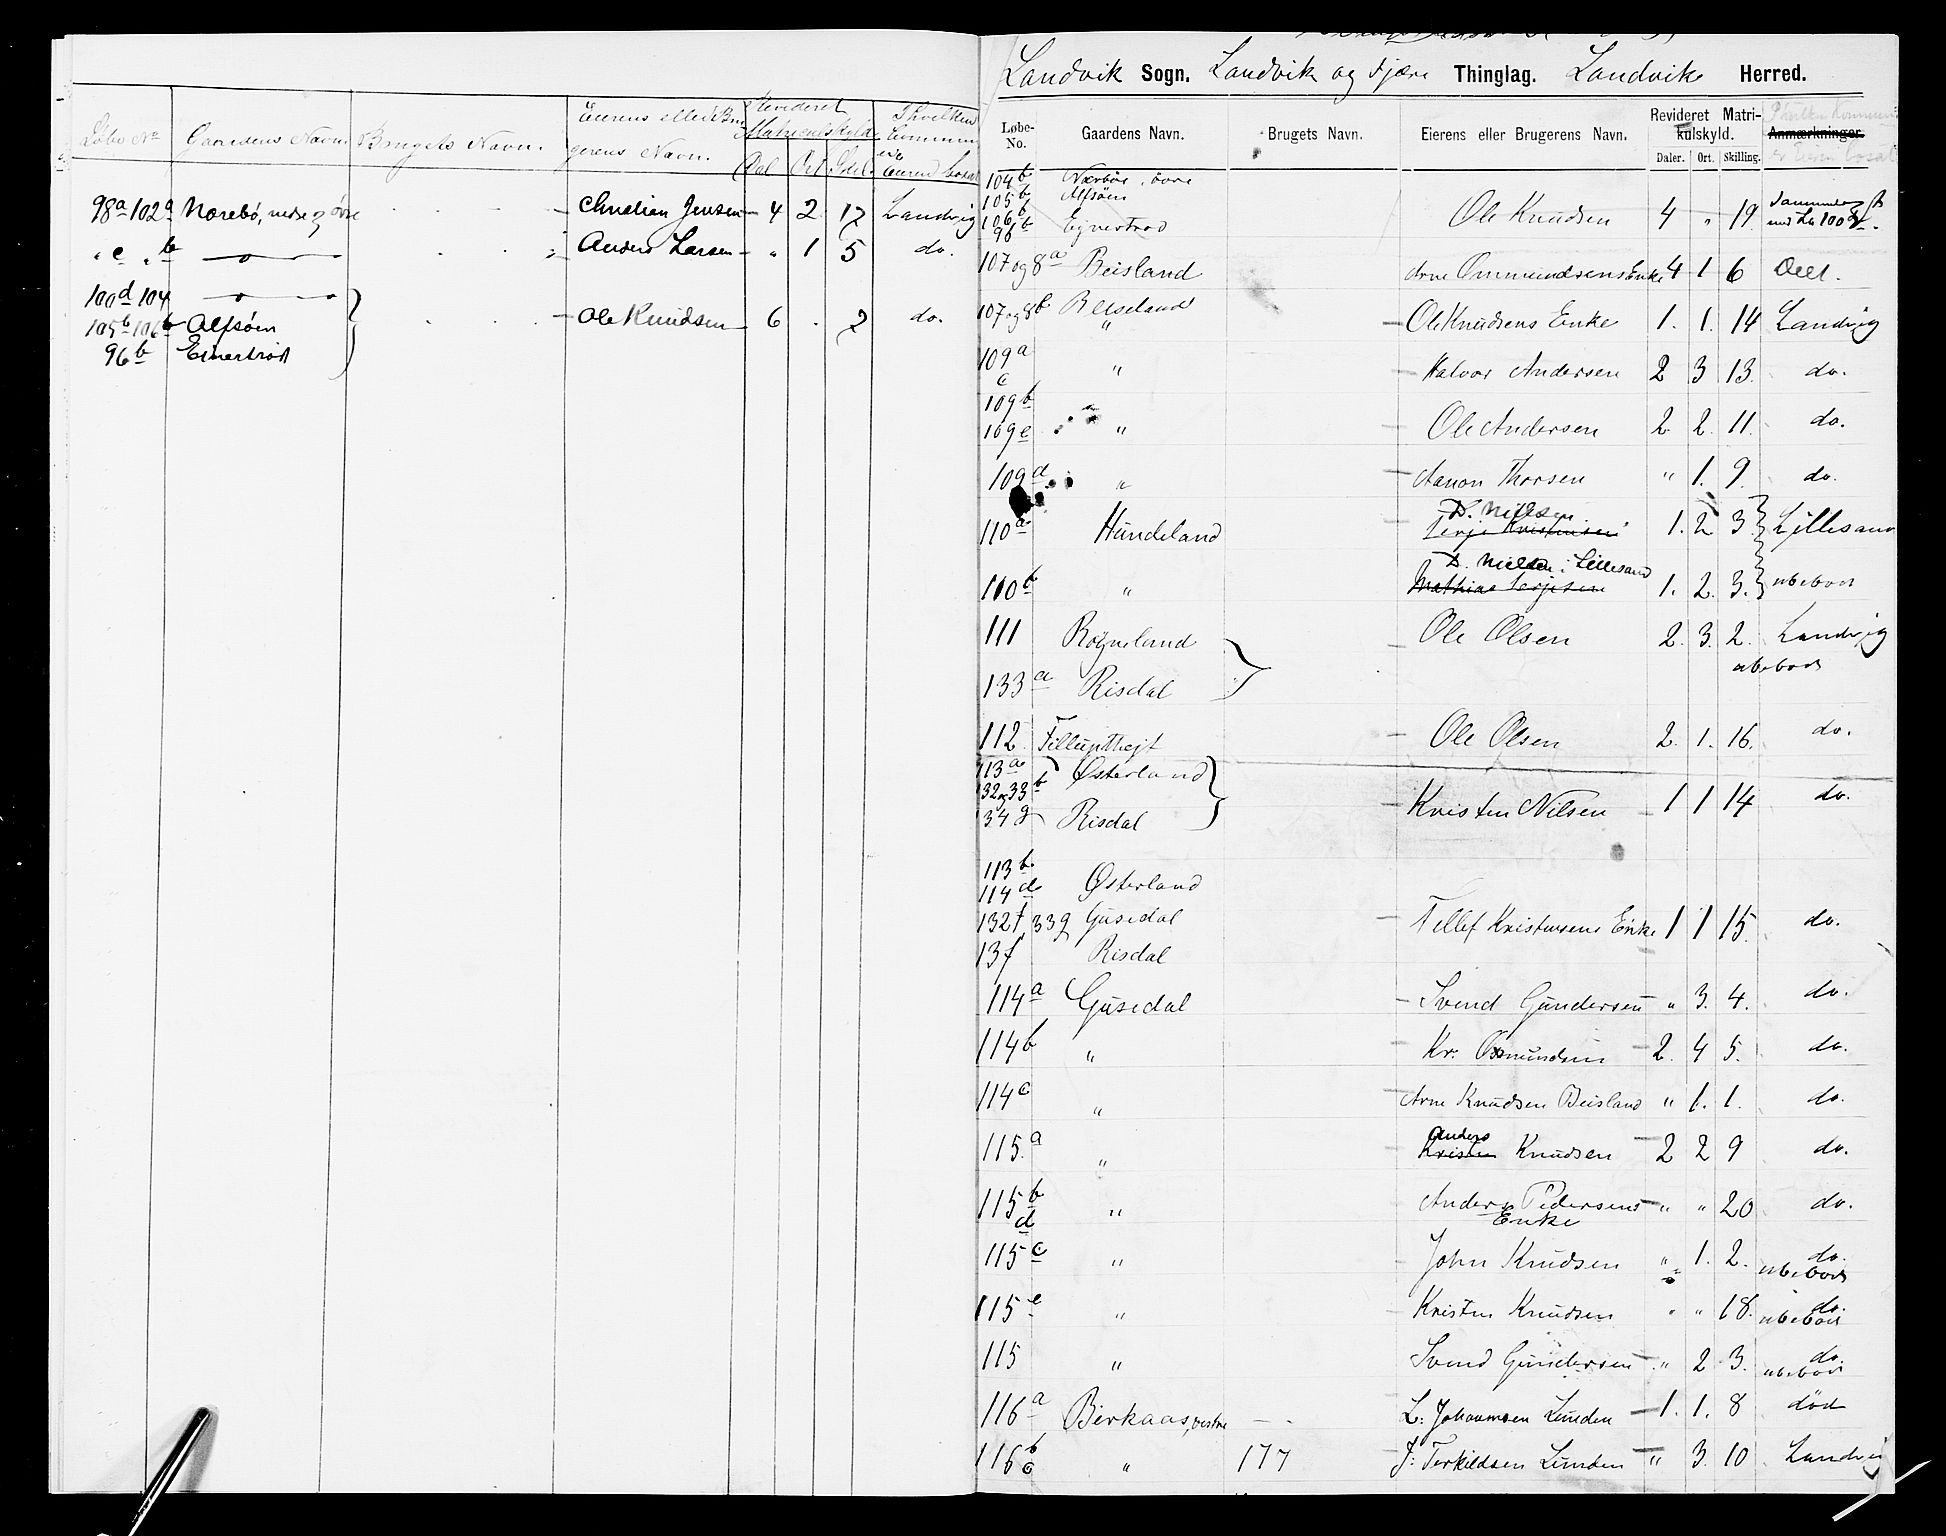 Løbe No Gaardens Navn. Brugets Navn. Eierens eller Brugerens Navn. Revideret Matriculskyld Dal Ort Skil. I hvilken Commune er Eieren bosat
98a 102a Norebö, nedre og övre Christian Jensen 4 2 17 Landvig
" c " b — " — Anders Larsen " 1 5 do.
100d 104 — " —
105b 106b Alfsöen Ole Knudsen 6 . 2 do.
96b Einertröd
Landvik Sogn. Landvik og Fjære Thinglag. Landviks Herred.
Løbe-No. Gaardens Navn. Brugets Navn. Eierens eller Brugerens Navn. Revideret Matrikulskyld. Daler. Ort. Skilling. Anmærkninger.
104b Nærböe, övre
105b Alfsöen
106b 96b Eynertröd Ole Knudsen 4 " 19
107 og 8a Beisland Arne Ommundsens Enke 4 1 6
107 og 8b Beiseland Ole Knudsens Enke 1. 1. 14 Landvig
109a c " Halvor Andersen 2 3 13. do.
109b
109e " Ole Andersen 2. 2. 11. do.
109d " Aanon Thorsen " 1. 9. do.
D. Nielsen
110a Hundeland Terje Kristensen 1. 2 3. Lillesand
D. Nielsen i Lillesand
110b " Mathias Terjesen 1. 2. 3. ubeboet
111 Rogneland Ole Olsen 2. 3. 2. Landvig
ubeboet
133a Risdal
112. Tilluptheit Ole Olsen 2. 1. 16. do.
113a Østerland
132 og 33b Kristen Nilsen 1 1 14 do.
134g Risdal
113b
114d Østerland
132f, 33g Gusedal Tellef Kristensens Enke 1 1 15. do.
13f Risdal
114a Gusedal Svend Gundersen " 3. 4. do.
114b " Kr. Osmundsen 2. 4 5. do.
114c " Arne Knudsen Beisland " 1. 1. do.
Anders
115.a " Kristen Knudsen 2 2 9 do.
115b d " Anders Pedersens Enke " " 20 do.
115c " John Knudsen " 1. 2. do. ubeboet
115e " Kristen Knudsen " " 18. do. ubeboet
115 " Svend Gundersen " 2 3. do. ubeboet
116a Birkaas, vestre L. Johannsen Lunden 1. 1. 8 död
116b c " 177 J. Terkildsen Lunden " 3. 10 Landvig